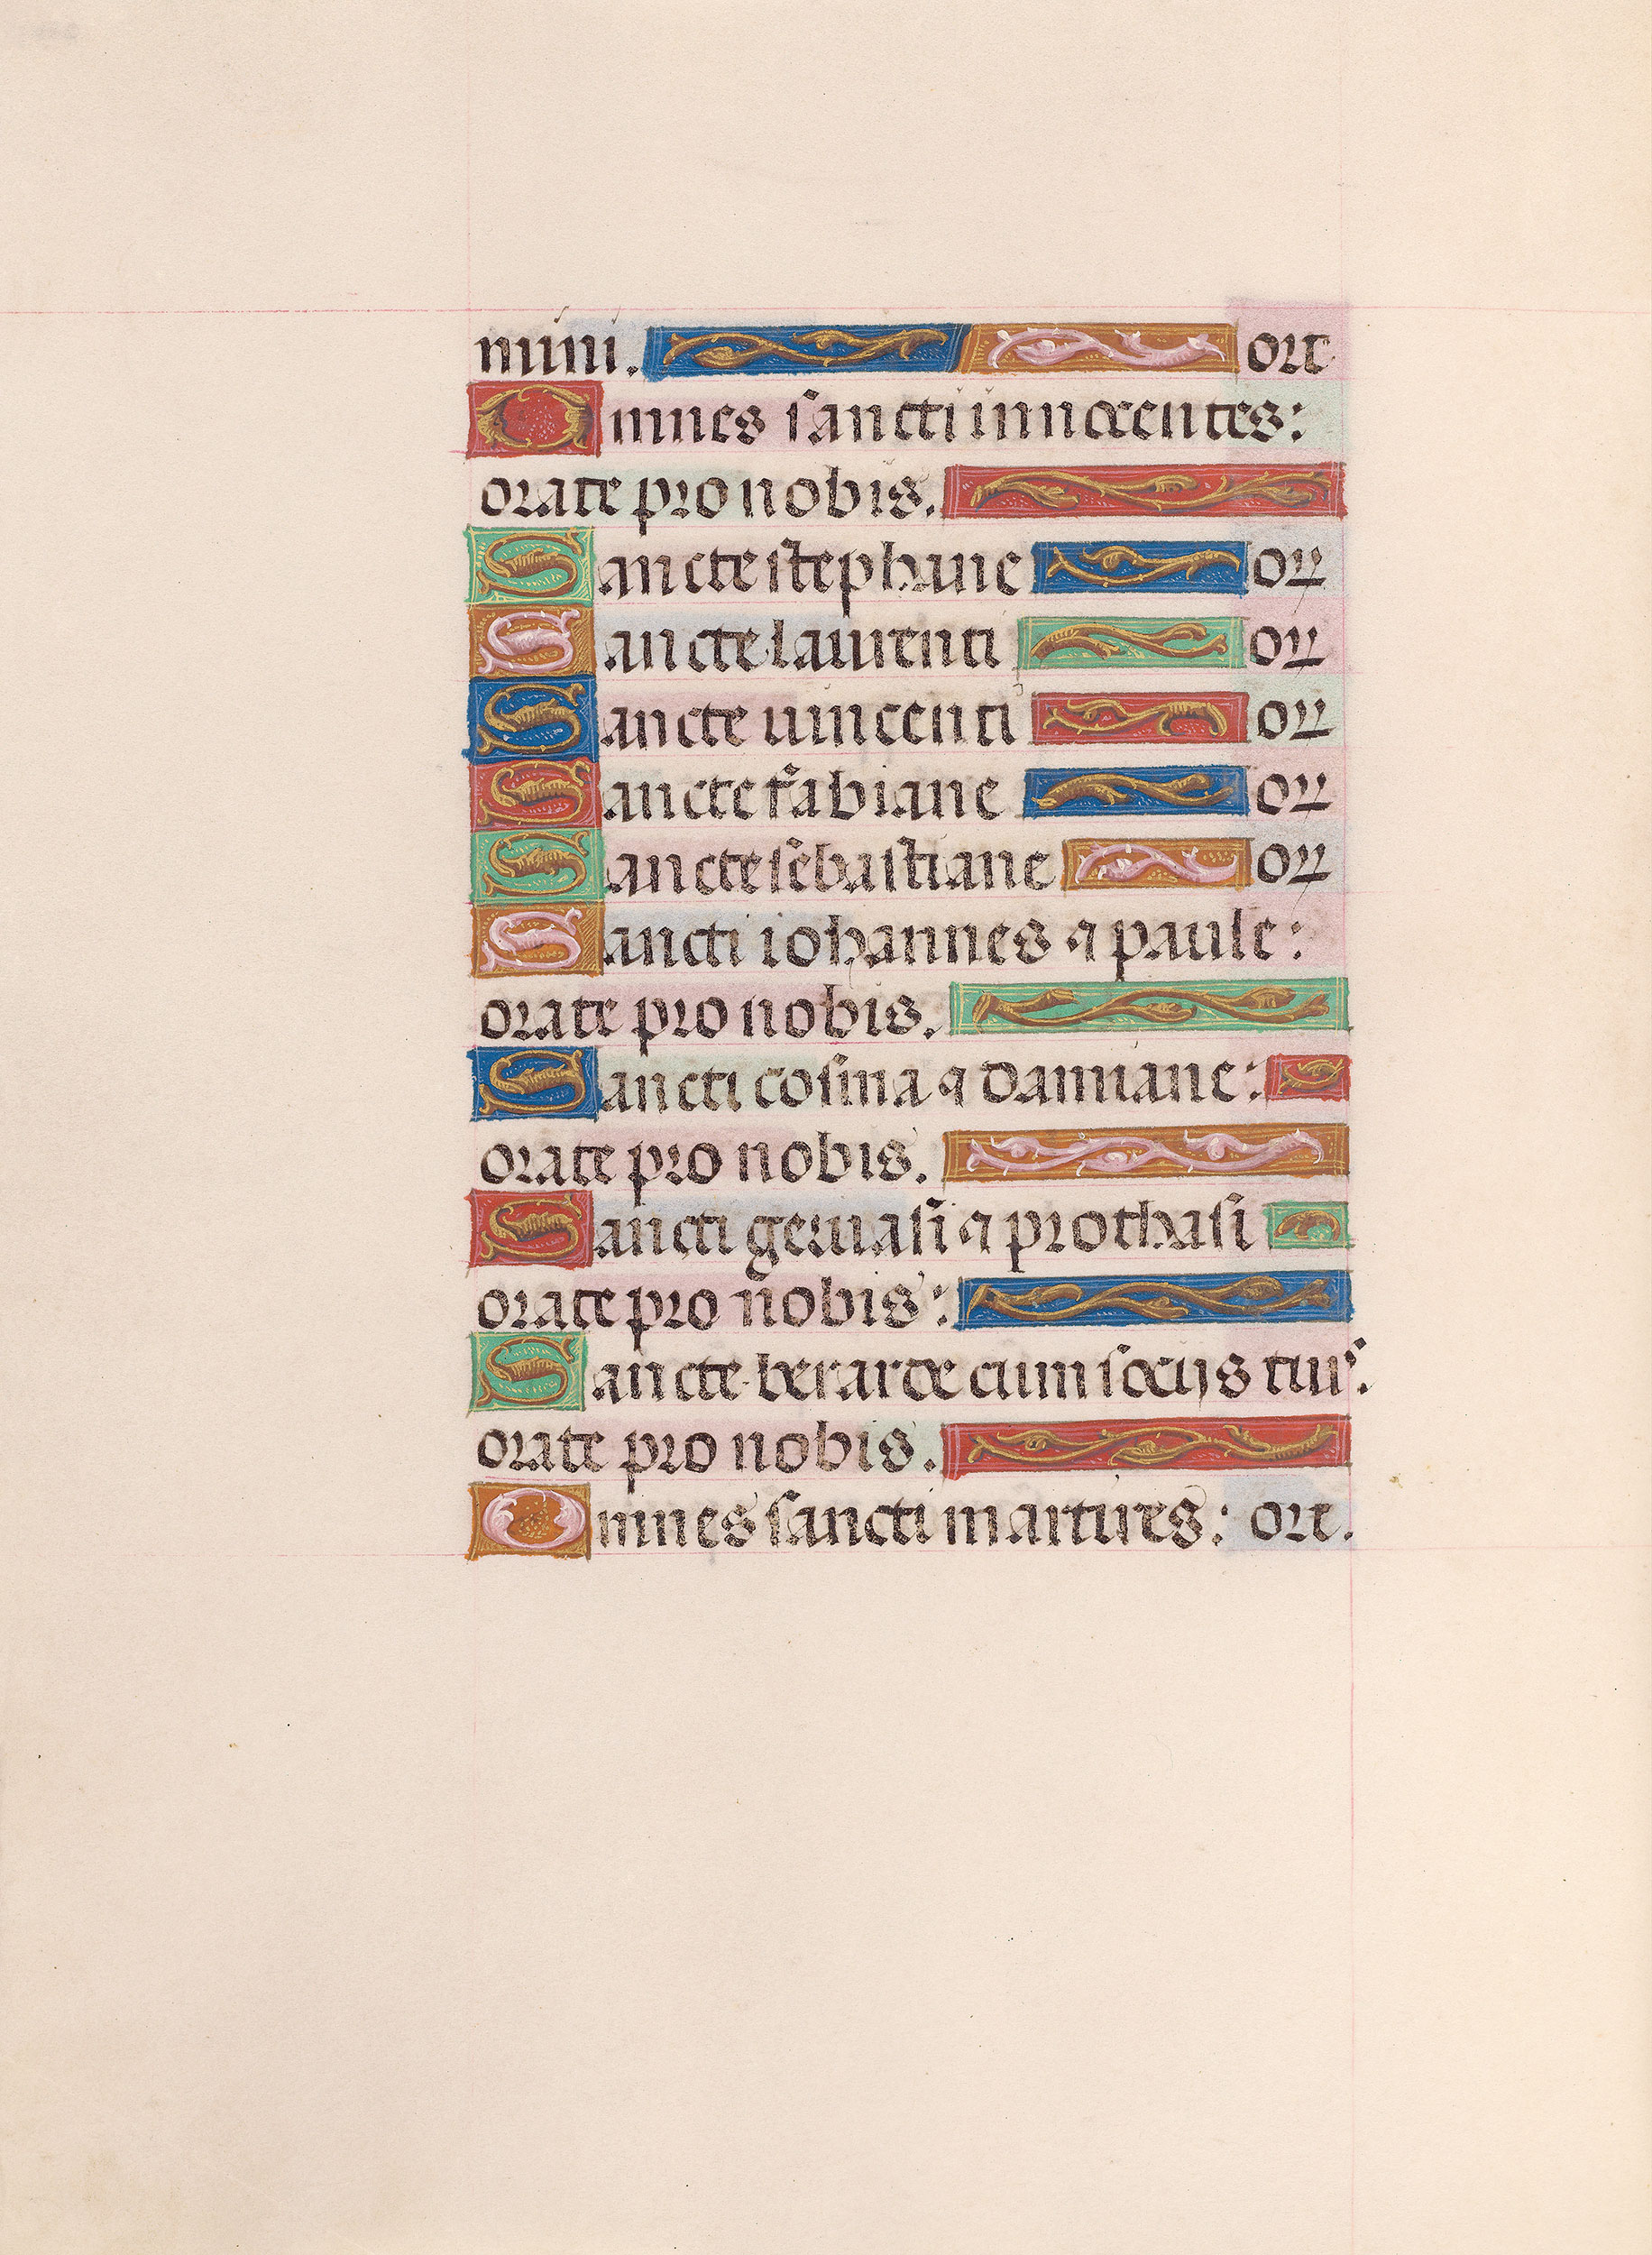 mini. ort
Omnes sancti innocentes:
orate pro nobis.
Sancte stephane or
Sancte laurenti or
Sancte vincenti or
Sancte fabiane or
Sancte sebastiane or
Sancti iohannes ⁊ paule:
orate pro nobis.
Sancti cosma ⁊ damiane:
orate pro nobis.
Sancti geruasi ⁊ prothasi
orate pro nobis:
Sancte berarde cum socijs tuis.
orate pro nobis.
Omnes sancti martires: ort.